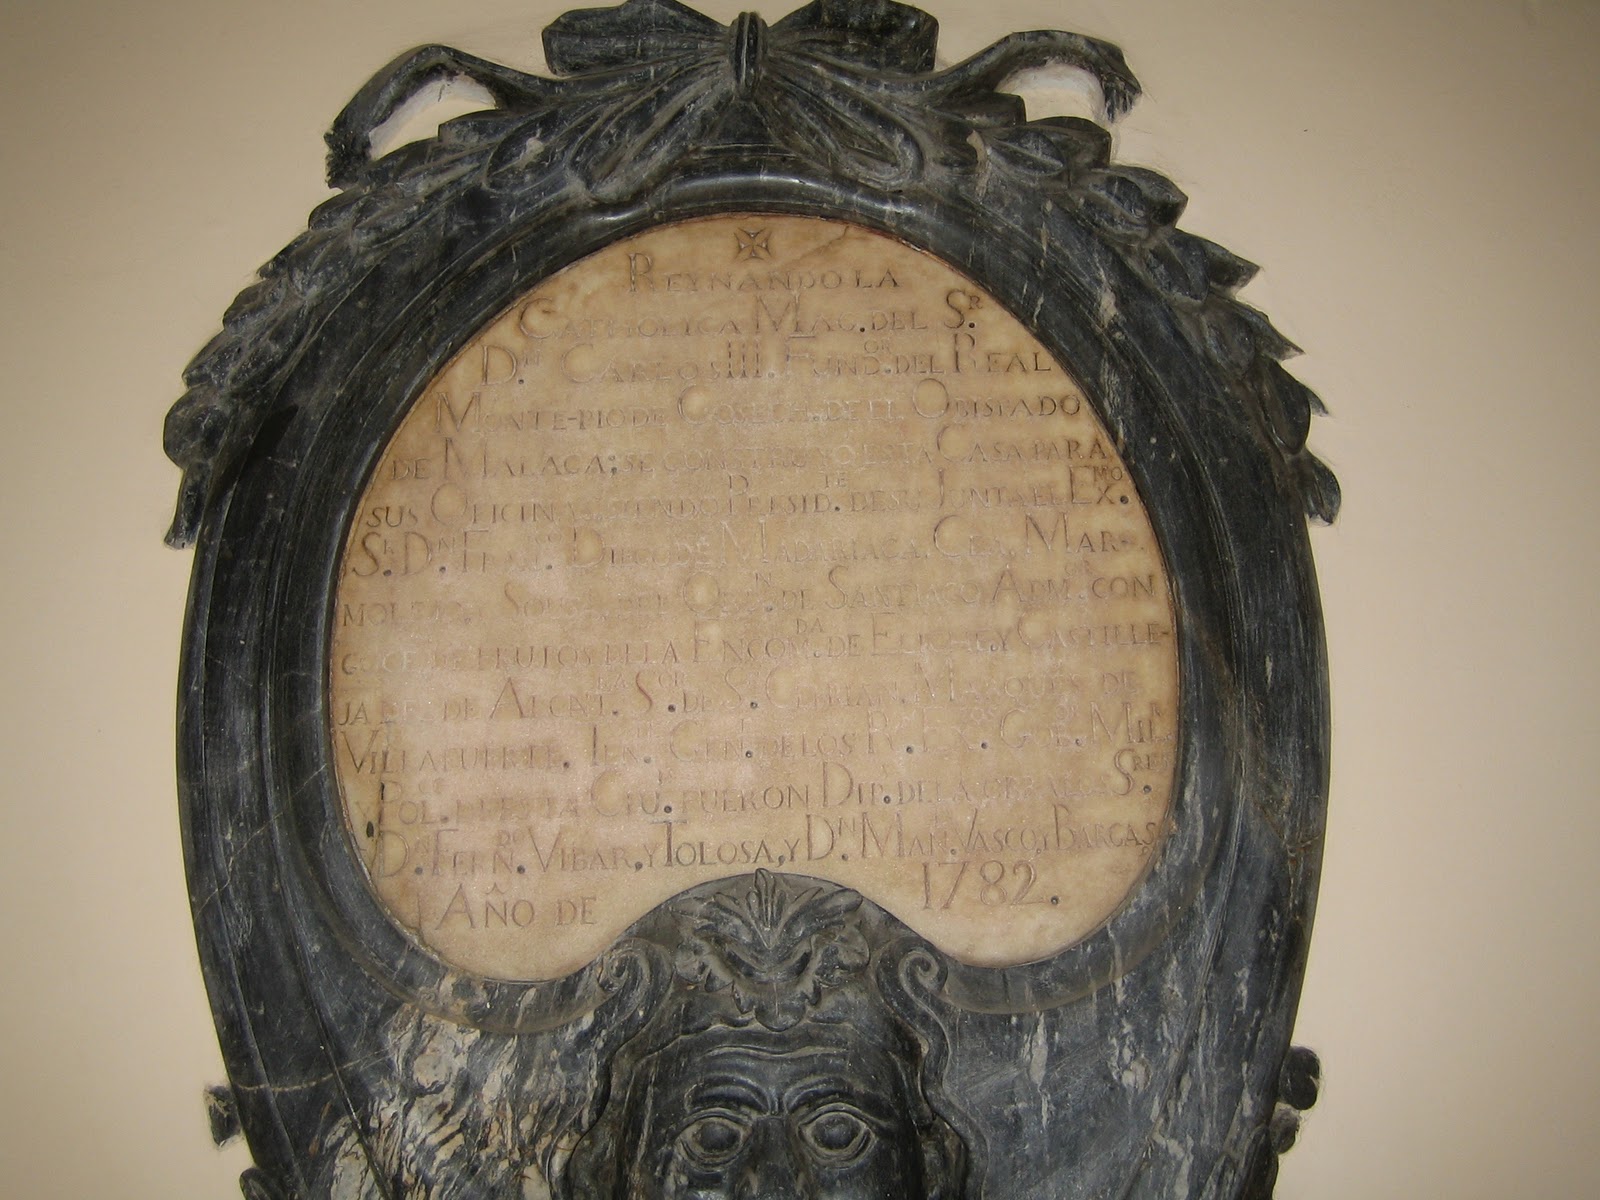 REYNANDO LA
CATHOLICA MAG. DEL Sʳ.
Dⁿ. CARLOS III. FUNDᵒʳ. DEL REAL
MONTE-PIO DE COSECH. DE EL OBISPADO
DE MALAGA; SE CONSTRUYO ESTA CASA PARA
SUS OFICINAS SIENDO PRESIDᵀᴱ. DE SU JUNTA EL EXᴹᴼ.
Sʳ. Dᴺ. FRANᶜᵒ. DIEGO DE MADARIAGA, MAR-
DEL ORDᴺ. DE SANTIAGO, ADMᴼᴿ. CON
GOCE DE FRUTOS DE LA ENCOMᴰᴬ. DE Y CASTILLE-
JA DE ALCNTᴿᴬ. Sᴼᴿ. DE Sⁿ. CIPRIAN, MARQUES DE
VILLAFUERTE, TENᵀᴱ. GEN. DE LOS Rˢ. EXᵒˢ. GOBᴼᴿ. MILᴿ.
Y POLᶜᴼ. DE ESTA CIU. FUERON DIR. DE LA OBRA LOS Sᴿᴱˢ.
Dᴺ. FERNᴰᴼ. VIBAR, Y TOLOSA, Y Dᴺ. MAN. VASCO, Y BARGAS
AÑO DE 1782.